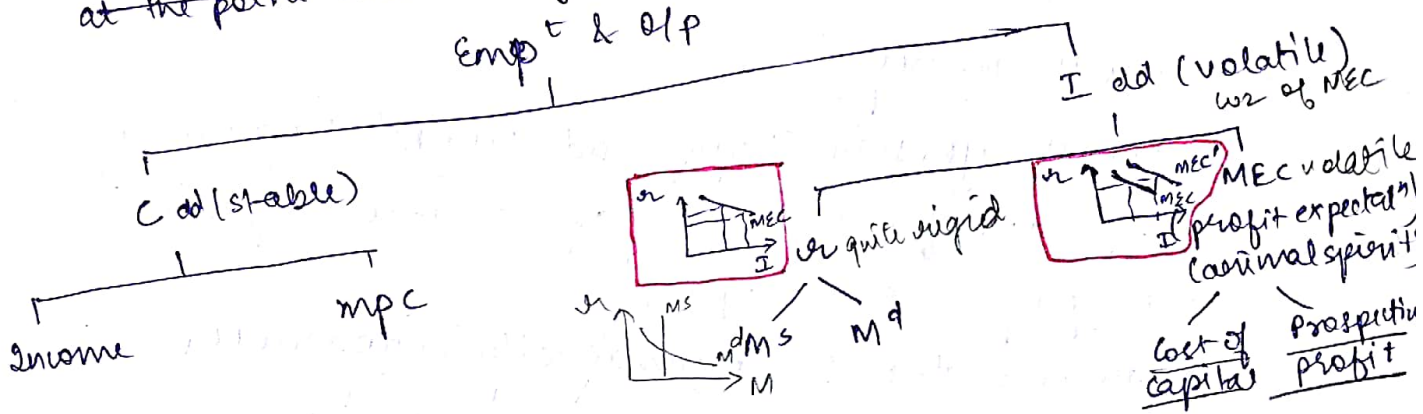 at the point
Emp^t & O/P
I dd (volatile)
coz of MEC
C dd (stable)
Income
mpc
r
MEC
I
r quite rigid
M^s
M^d
r
M^s
M^d
M
r
MEC'
MEC
I
MEC volatile
profit expectatn)
(animal spirits
Cost of
capital
Prospective
profit